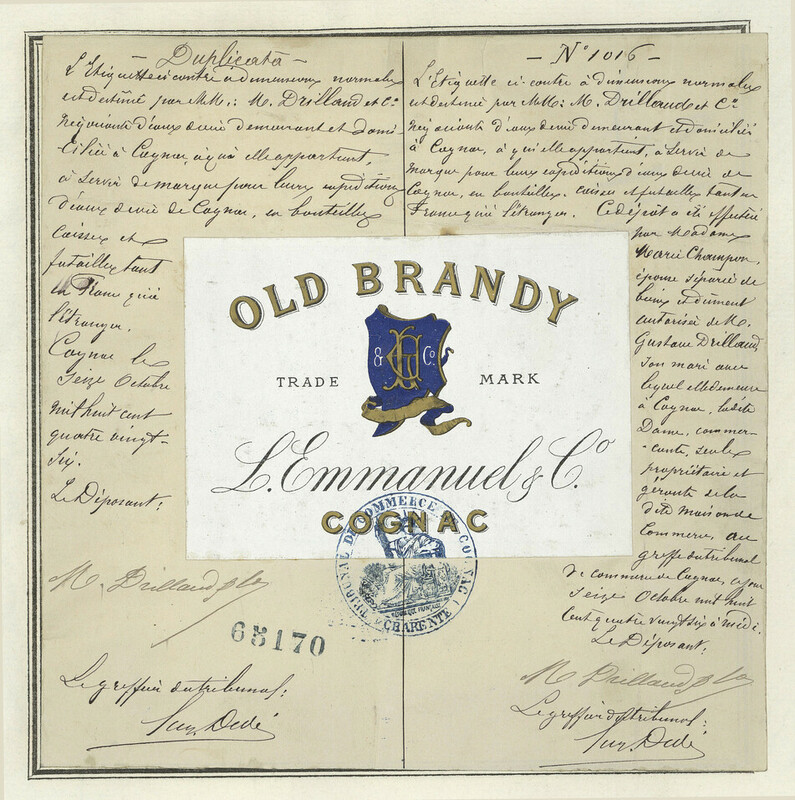 Duplicata
L'Etiquette ci contre à dimensions normales
est destiné par MM: M. Drillaud et Cie
négociants d'eaux de vie demeurant et domi-
ciliés à Cognac, à qui elle appartient,
à servir de marque pour leurs expéditions
d'eaux de vie de Cognac, en bouteilles
caisses et
futailles tant
en France qu'à
l'étranger.
Cognac le
seize Octobre
mil huit cent
quatre vingt-
six.
Le Déposant:
M. Drillaud & Co
65170
Le greffier du tribunal:
N° 1016
L'Etiquette ci-contre à dimensions normales
est destiné par MM: M. Drillaud et Cie
négociants d'eaux de vie demeurant et domiciliés
à Cognac, à qui elle appartient, à servir de
marque pour leurs expéditions d'eaux de vie de
Cognac, en bouteilles, caisses et futailles tant en
France qu'à l'étranger. Ce dépôt a été effectué
par Madame
Marie Champon,
épouse séparée de
biens et dûment
autorisée de M.
Gustave Drillaud,
son mari avec
lequel elle demeure
à Cognac, la dite
Dame, commer-
çante, seule
propriétaire et
gérante de la
dite maison de
Commerce, au
greffe du tribunal
de commerce de Cognac, ce jour
seize Octobre mil huit
cent quatre vingt six à midi.
Le Déposant:
M. Drillaud & Co
Le greffier du tribunal:
OLD BRANDY
& Co.
TRADE MARK
L. Emmanuel & Co
COGNAC
TRIBUNAL DE COMMERCE DE COGNAC
(CHARENTE)